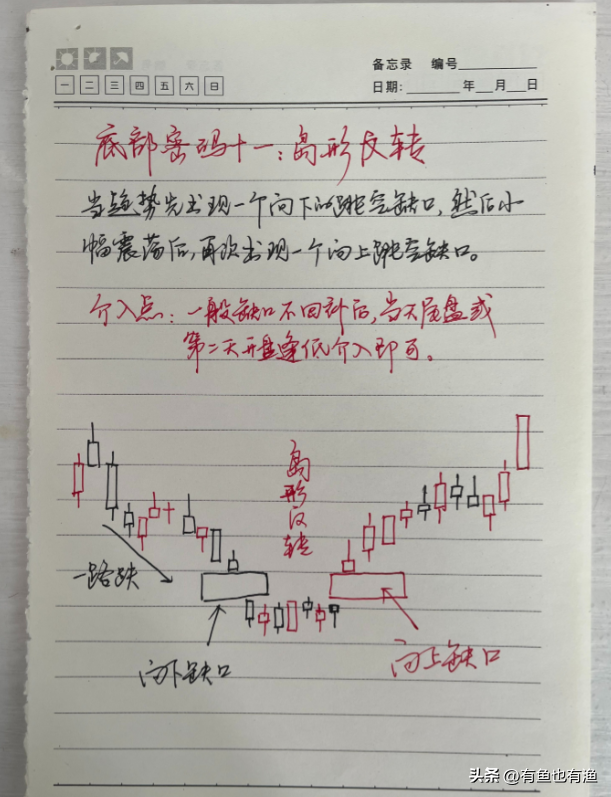 备忘录 编号
一 二 三 四 五 六 日
日期: 年 月 日
底部密码十一:岛形反转
当趋势先出现一个向下的跳空缺口,然后小
幅震荡后,再次出现一个向上跳空缺口。
介入点:一般缺口不回补后,当天尾盘或
第二天开盘逢低介入即可。
岛形反转
一路跌
向下缺口
向上缺口
头条 @有鱼也有渔